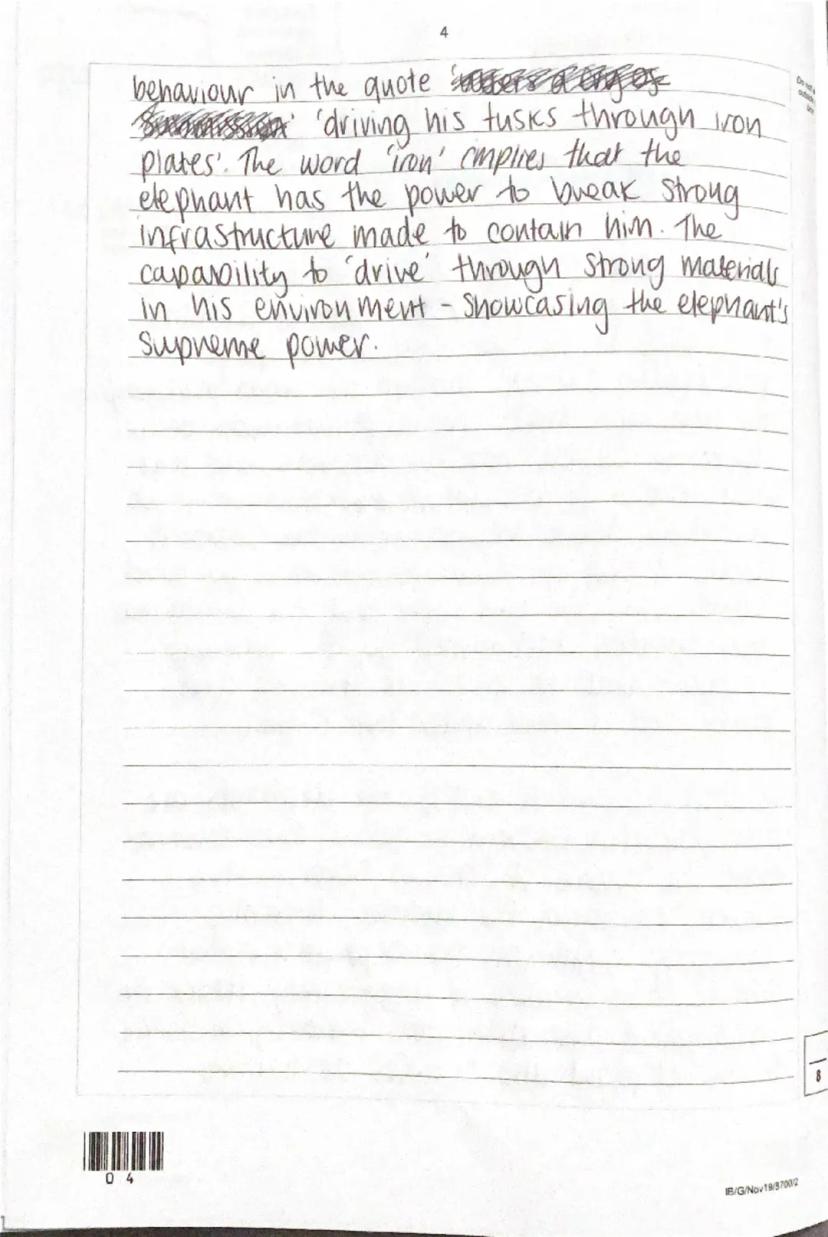 4
behaviour in the quote
'driving his tusks through iron
plates'. The word 'iron' implies that the
elephant has the power to break strong
infrastructure made to contain him. The
capability to 'drive' through strong materials
in his environment - showcasing the elephant's
supreme power.
8
0 4
IB/G/Nov19/8700/2